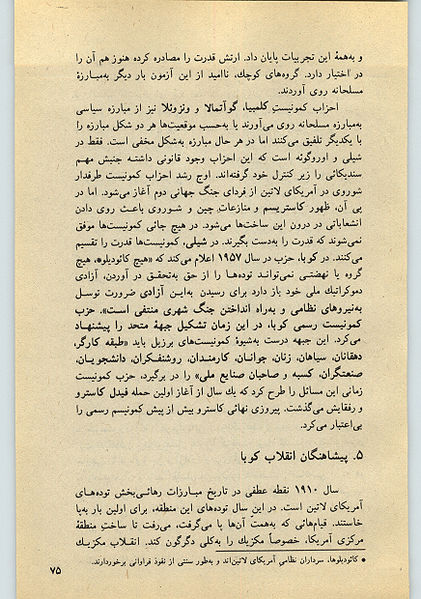 و به‌همهٔ این تجربیات پایان داد. ارتش قدرت را مصادره کرده هنوز هم آن را
در اختیار دارد. گروه‌های کوچک، ناامید از این آزمون بار دیگر به‌مبارزهٔ
مسلحانه روی آوردند.
احزاب کمونیست کلمبیا، گوآتمالا و ونزوئلا نیز از مبارزه سیاسی
به‌مبارزه مسلحانه روی می‌آورند یا به‌حسب موقعیت‌ها هر دو شکل مبارزه را
با یکدیگر تلفیق می‌کنند اما در هر حال مبارزه به‌شکل مخفی است. فقط در
شیلی و اوروگوئه است که این احزاب وجود قانونی داشته جنبش مهم
سندیکائی را زیر کنترل خود گرفته‌اند. اوج رشد احزاب کمونیست طرفدار
شوروی در آمریکای لاتین از فردای جنگ جهانی دوم آغاز می‌شود. اما در
پی آن، ظهور کاستریسم و منازعات چین و شوروی باعث روی دادن
انشعاباتی در درون این ساخت‌ها می‌شود. در هیچ جائی کمونیست‌ها موفق
نمی‌شوند که قدرت را به‌دست بگیرند. در شیلی، کمونیست‌ها قدرت را تقسیم
می‌کنند. در کوبا، حزب در سال ۱۹۵۷ اعلام می‌کند که «هیچ کائودیلو*، هیچ
گروه یا نهضتی نمی‌تواند توده‌ها را از حق به‌تحقق در آوردن، آزادی
دموکراتیک ملی خود باز دارد برای رسیدن به‌این آزادی ضرورت توسل
به‌نیروهای نظامی و به‌راه انداختن جنگ شهری منتفی است». حزب
کمونیست رسمی کوبا، در این زمان تشکیل جبههٔ متحد را پیشنهاد
می‌کرد. این جبهه درست به‌شیوهٔ کمونیست‌های برزیل باید «طبقه کارگر،
دهقانان، سیاهان، زنان، جوانان، کارمندان، روشنفکران، دانشجویان،
صنعتگران، کسبه و صاحبان صنایع ملی» را در برگیرد، حزب کمونیست
زمانی این مسائل را طرح کرد که یک سال از آغاز اولین حمله فیدل کاسترو
و رفقایش می‌گذشت. پیروزی نهائی کاسترو بیش از پیش کمونیسم رسمی را
بی‌اعتبار می‌کرد.
۵. پیشاهنگان انقلاب کوبا
سال ۱۹۱۰ نقطه عطفی در تاریخ مبارزات رهائی‌بخش توده‌های
آمریکای لاتین است. در این سال توده‌های این منطقه، برای اولین بار به‌پا
خاستند. قیام‌هائی که به‌همت آن‌ها پا می‌گرفت، می‌رفت تا ساخت منطقهٔ
مرکزی آمریکا، خصوصاً مکزیک را به‌کلی دگرگون کند. انقلاب مکزیک
* کائودیلوها، سرداران نظامی آمریکای لاتین‌اند و به‌طور سنتی از نفوذ فراوانی برخوردارند.
۷۵